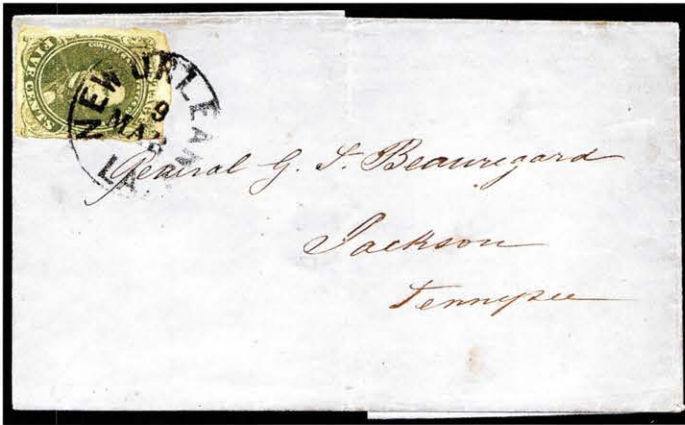 FIVE CENTS
NEW ORLEANS
9
MAR
LA
General G. T. Beauregard
Jackson
Tennessee